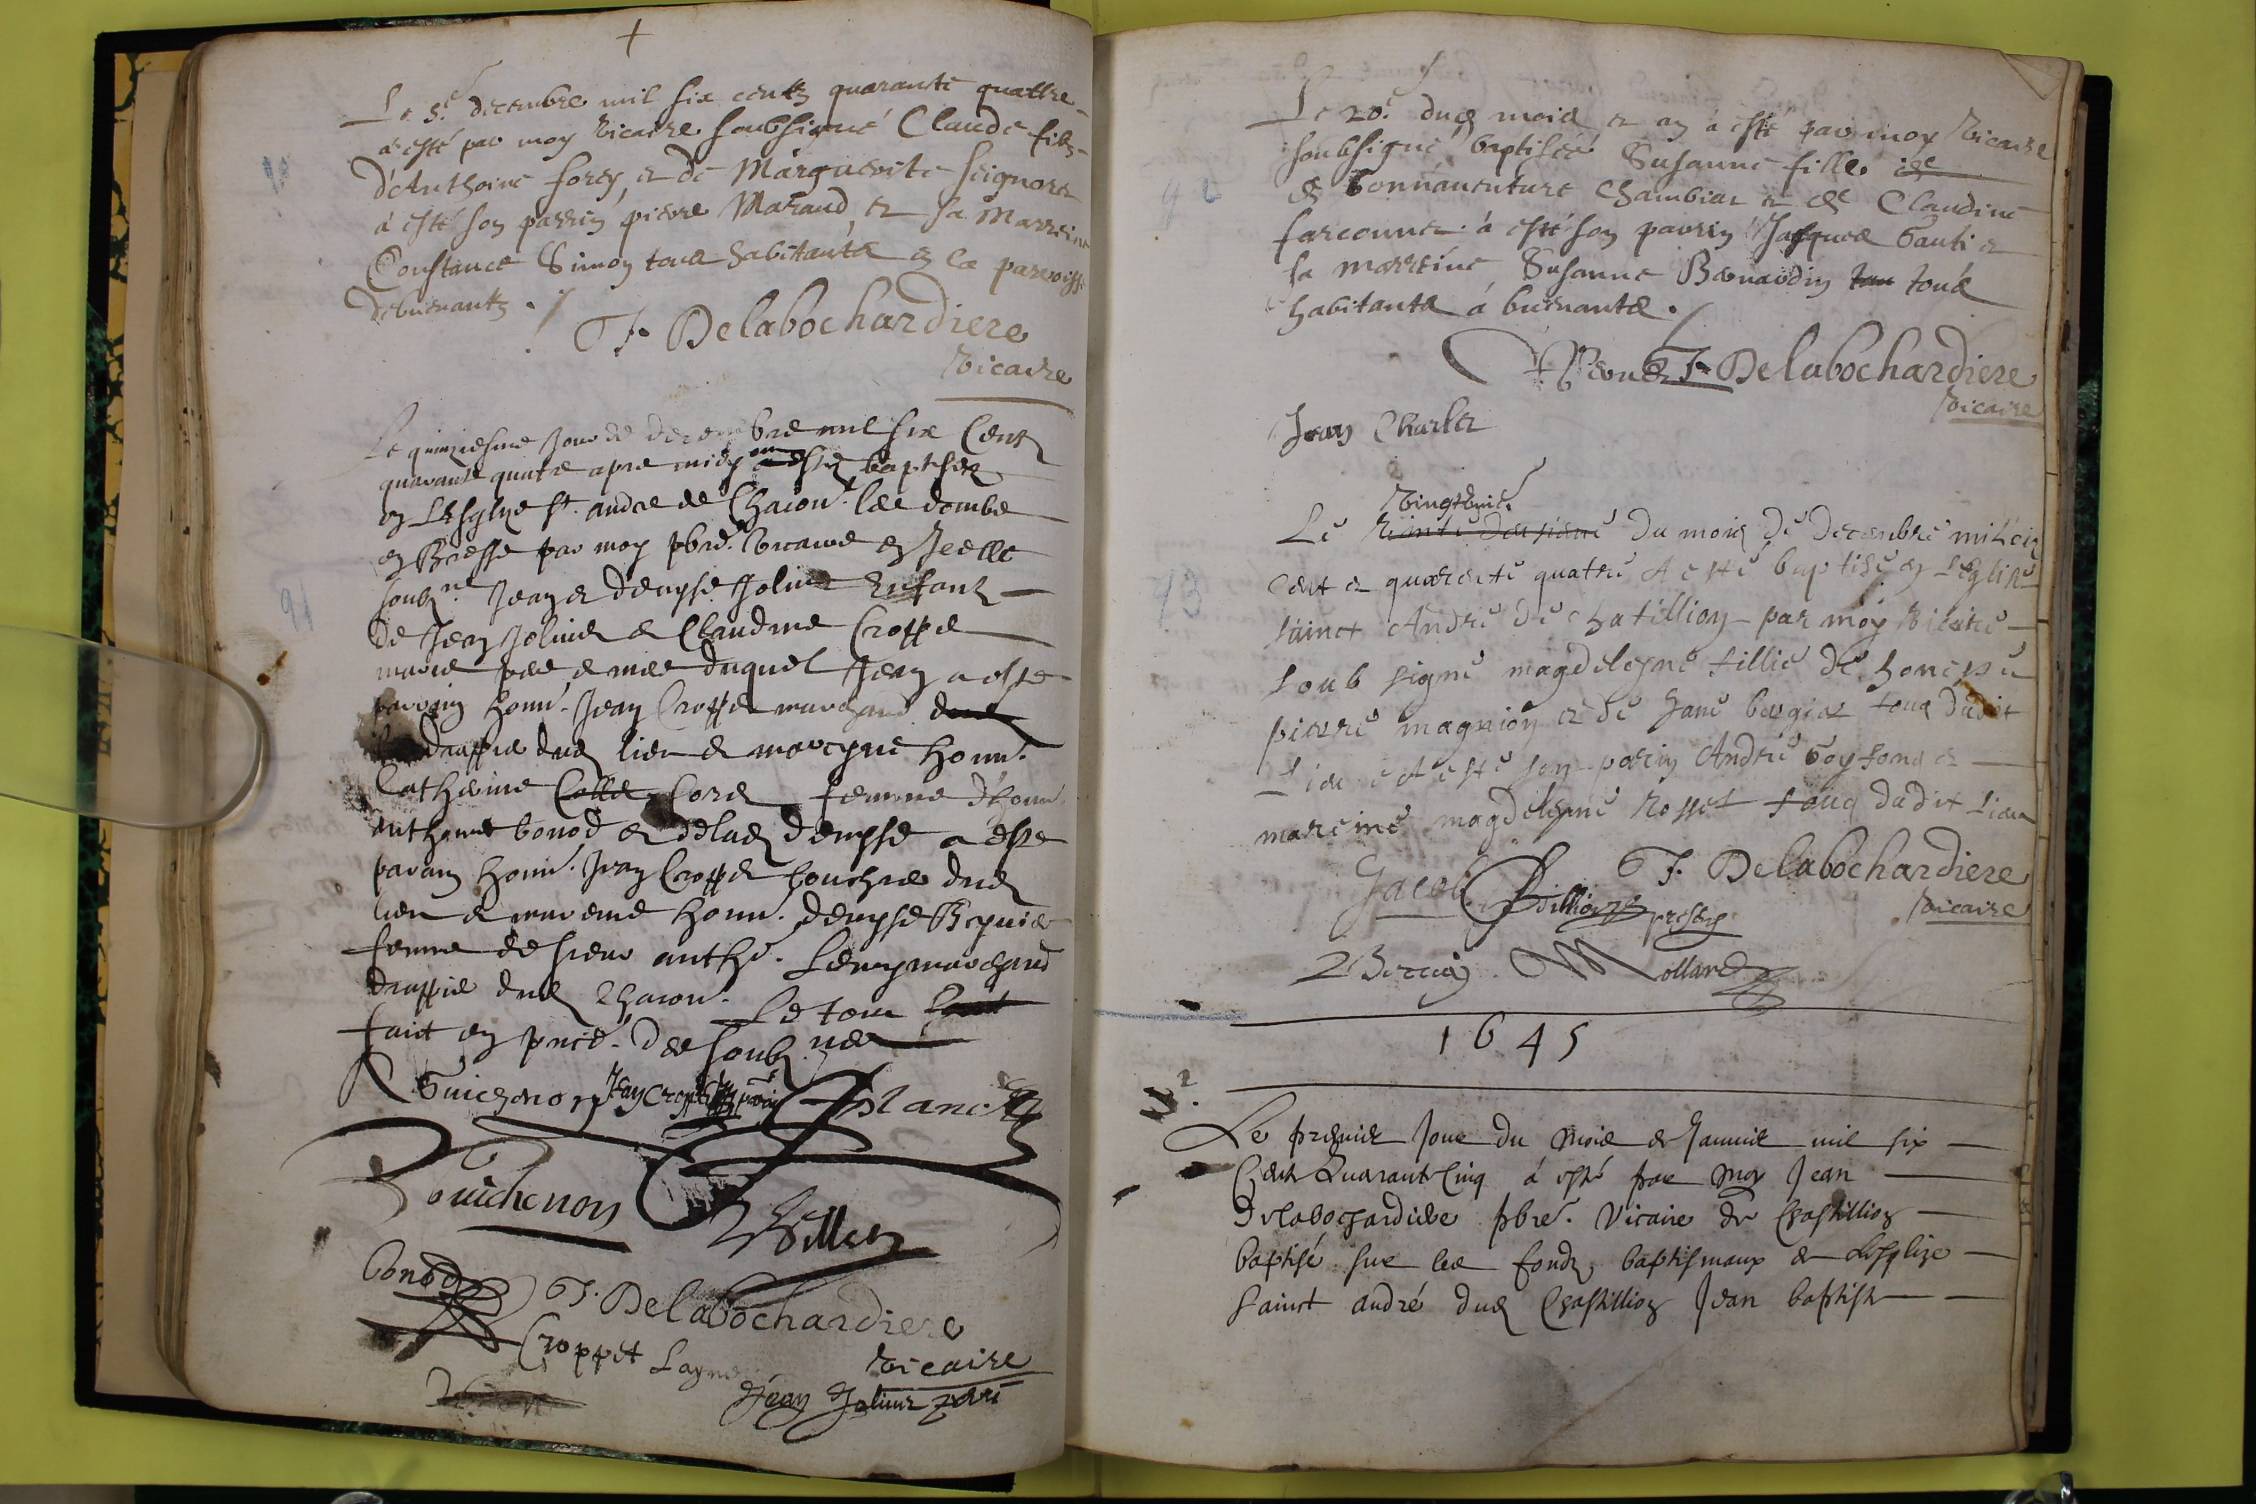 Le 5.e decembre mil six centz quarante quattre
a esté par moy vicaire soubsigné Claude filz
d'Anthoine forey, et de Marguerite seignoret
à esté son parrin pierre Maraud et sa Marreine
Constance Simon tous habitants en la parroisse
de buenantz
J. Delabochardiere
vicaire
Le quinziesme Jour de decembre mil six Centz
quarante quatre apres midy ont estez baptisez
en LEsglize St. andre de Chaōn. les dombe
en Bresse par moy pbre. vicaire en Icelle
soubz.né Jean et denyse Joliuet Enfantz
de Jean Joliuet et Claudine Croppet
maries pere et mere duquel Jean a esté
parrain honn. Jean Croppet marchand
drappier dud lieu et marreyne honn.
Catherine Cord femme d'honn.
anthoine bonod et de lad denyse a esté
parrain honn. Jean Croppet bouchier dud
lieu et marreine honn. denyse
femme de sieur anthe. marchand
drappier dud Chaōn. Le tout
faict en pnce. des soubz.nez
Guichenon Jean Croppet parrin Blanc
Guichenon
bonod J. Delabochardiere
Croppet vicaire
Jean Joliuet pere
Le 20.e dud mois et an à esté par moy vicaire
soubsigné baptisée Susanne fille
de bonnauenture Chambiar et de Claudine
farconnet à esté son parrin Jasques Gauti et
sa marreine Susanne Bernardin tous
habitants à buenants.
J. Delabochardiere
vicaire
Jean Charlet
vingthuict
Le du mois de decembre mil six
cent et quarente quatre A esté baptisé en Léglise
sainct André de chatillion par moy vicaire
soub signé magdeleyne fillie de honeste
pierre magnion et de Jane bergier tous dudit
Lieu et A esté son parin André Goyfond et
mareine magdeleyne Rosset tous dudit Lieu
Jacob J. Delabochardiere
vicaire
Mollard
1645
Le premier Jour du mois de Januier mil six
Cent Quarant Cinq à esté par moy Jean
Delabochardiere pbre. Vicaire de Chastillion
baptisé sur les fondz baptismaux de Lesglize
sainct andré dud Chastillion Jean baptiste